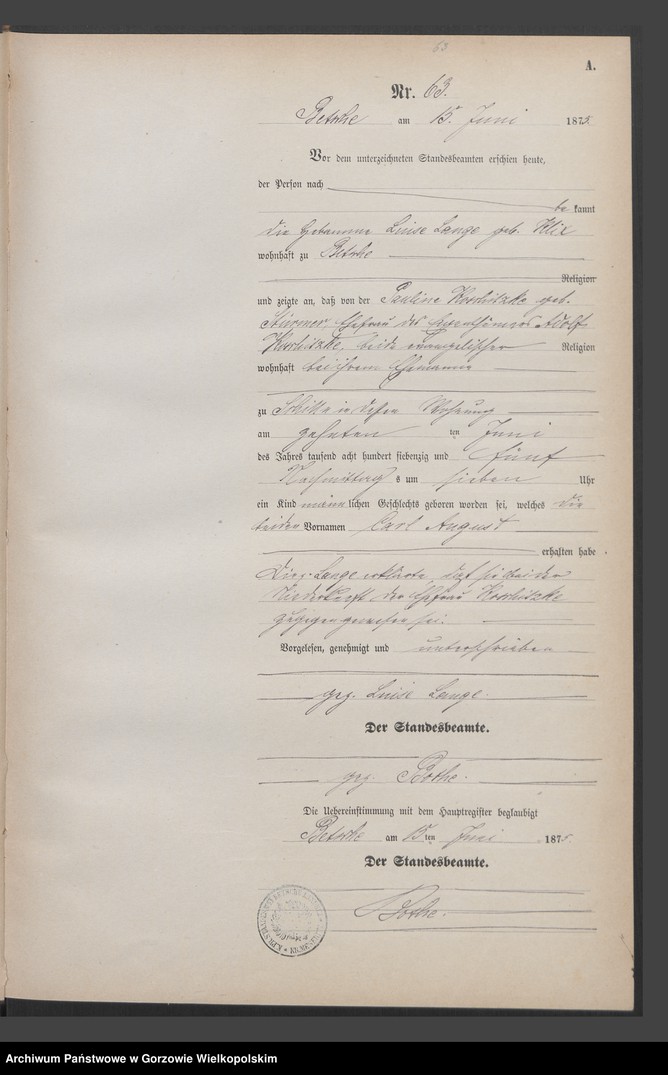 63
A.
Nr. 63.
Betsche am 15. Juni 1875.
Vor dem unterzeichneten Standesbeamten erschien heute,
der Person nach
be kannt
die Hebamme Luise Lange geb. Klix
wohnhaft zu Betsche
Religion
und zeigte an, daß von der Pauline Koschitzke geb.
Stürmer, Ehefrau des Eigenthümers Adolf
Koschitzke, beide evangelischer Religion
wohnhaft bei ihrem Ehemanne
zu in dessen Wohnung
am zehnten ten Juni
des Jahres tausend acht hundert siebenzig und fünf
Nachmittag s um sieben Uhr
ein Kind männlichen Geschlechts geboren worden sei, welches die
beiden Vornamen Carl August
erhalten habe.
Die p. Lange erklärte, daß sie bei der
Niederkunft der Ehefrau Koschitzke
zugegen gewesen sei.
Vorgelesen, genehmigt und unterschrieben
gez. Luise Lange.
Der Standesbeamte.
gez. Bothe.
Die Uebereinstimmung mit dem Hauptregister beglaubigt
Betsche am 15 ten Juni 1875.
Der Standesbeamte.
Bothe.
Archiwum Państwowe w Gorzowie Wielkopolskim